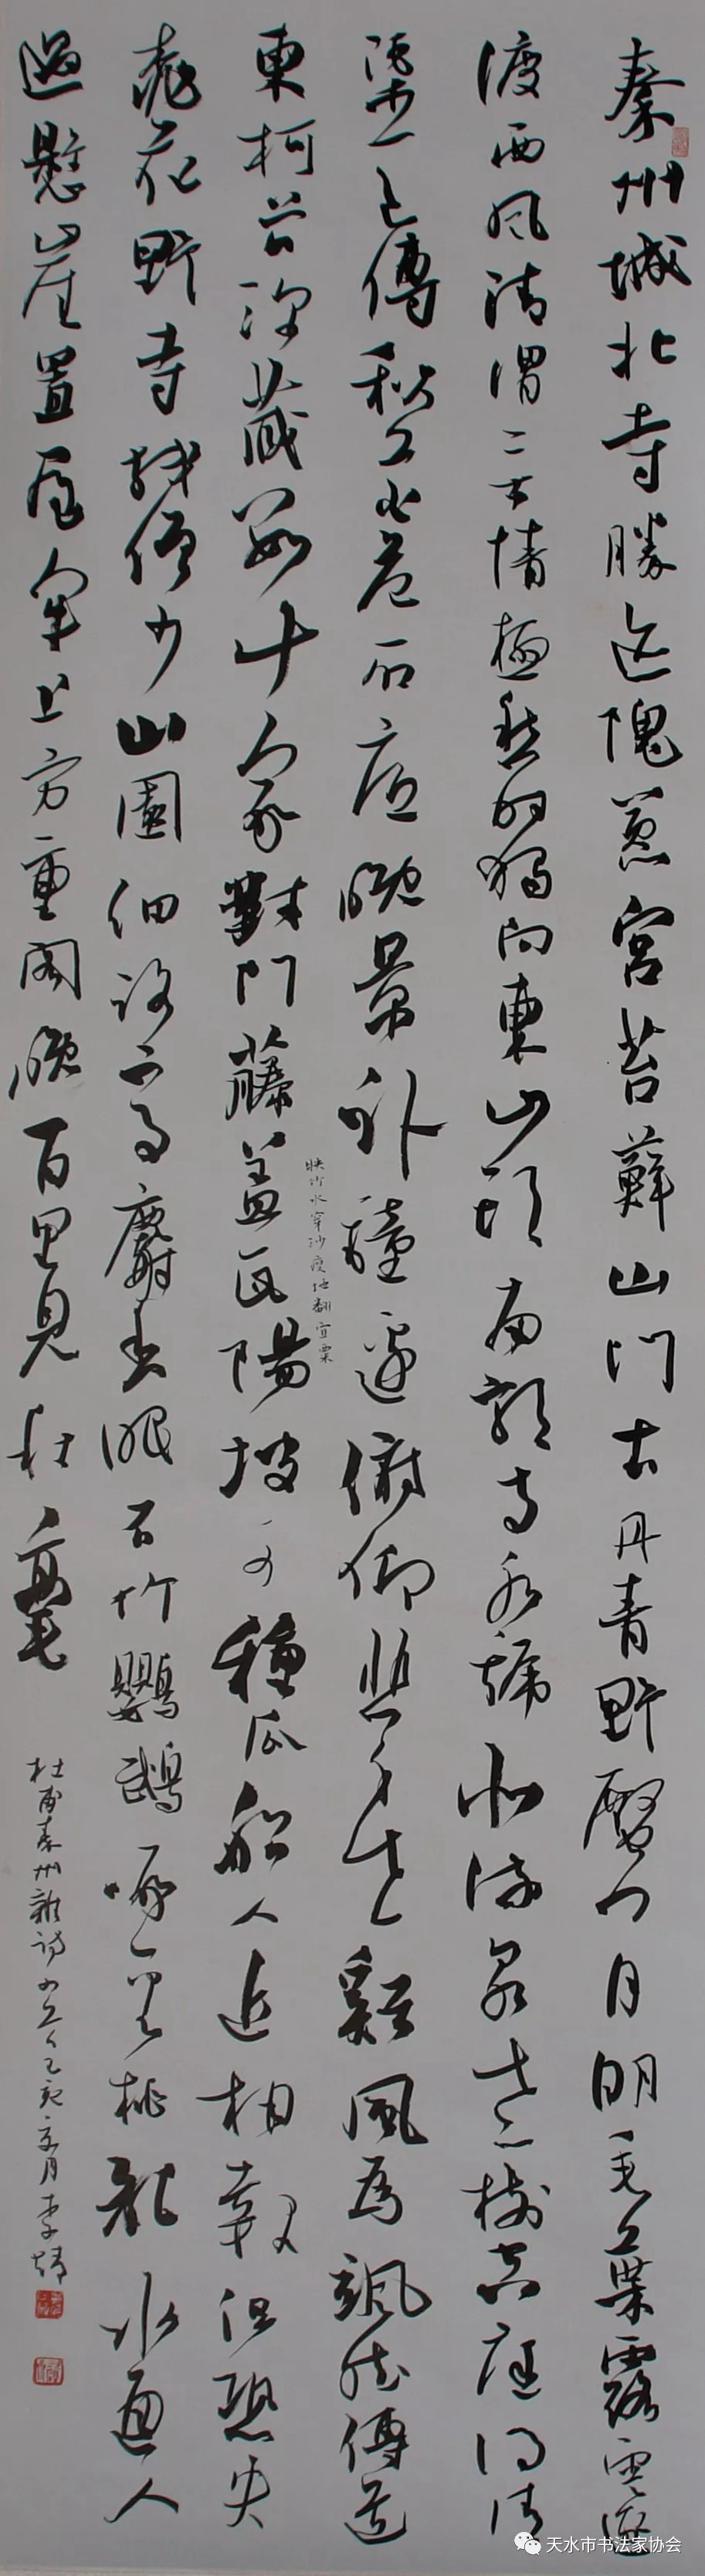 秦州城北寺勝迹隗囂宮苔蘚山門古丹青野殿空月明垂葉露雲逐
渡西風清渭無情極愁時獨向東山頭南郭寺水號北流泉老樹空庭得清
渠一邑傳秋花危石底晚景卧鐘邊俯仰悲身世谿風為颯然傳道
東柯谷深藏數十家對門藤蓋瓦陽坡可種瓜船人近相報但恐失
映竹水穿沙瘦地翻宜粟
桃花野寺殘僧少山園細路高麝香眠石竹鸚鵡啄金桃亂水通人
過懸崖置屋牢上方重閣晚百里見秋毫
杜甫秦州雜詩己亥夏月李
天水市书法家协会